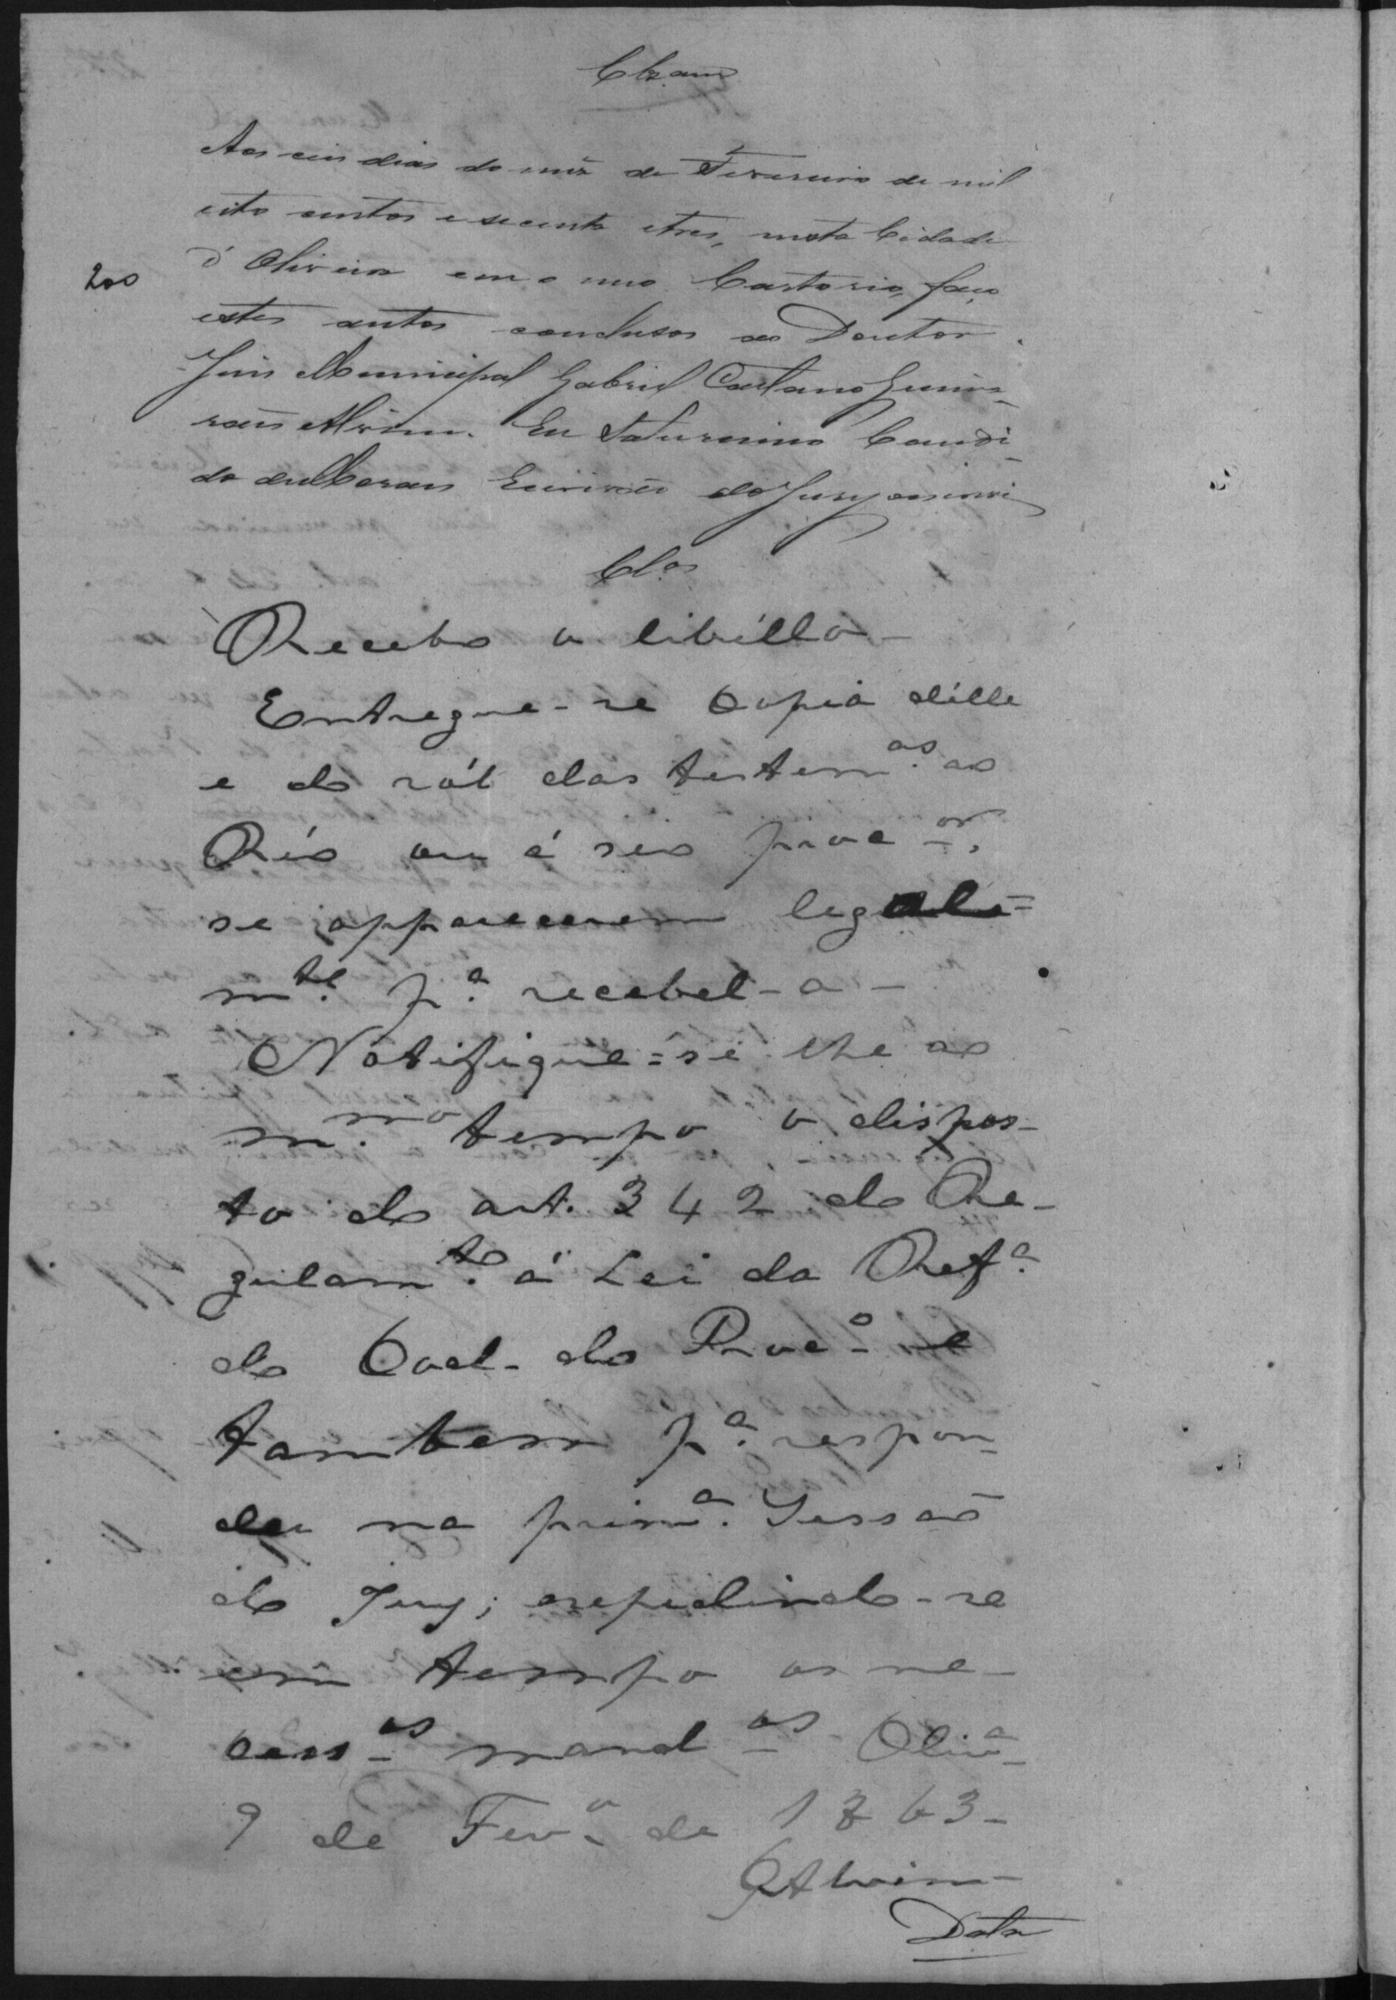 Clzam
Aos seis dias do mês de Fevereiro de mil
oito centos e secenta e tres, nesta Cidade
d'Oliveira em o meo Cartorio, faço
200
estes autos conclusos ao Doutor
Juis Municipal Gabriel Caetano Guima-
raẽs Alvim. Eu Saturnino Candi-
do de Moraes Escrivão do Jury o escrevi
Cl.os
Recebo o libéllo -
Entregue-se Copia délle
e do ról das testem.as ao
Réo ou á seo proc.or,
se apparecerem legal=
m.te p.a recebel-a -
Notifique=se lhe ao
m.mo tempo o dispos-
to do art. 342 do Re-
gulam.to á Lei da Ref.a
do Cod. do Proc.o e
tambem p.a respon-
der na prim.a Sessão
do Jury; expedindo-se
em tempo os ne-
cess.os mand.os Oliv.a
9 de Fev.o de 1863-
GAlvim-
Data